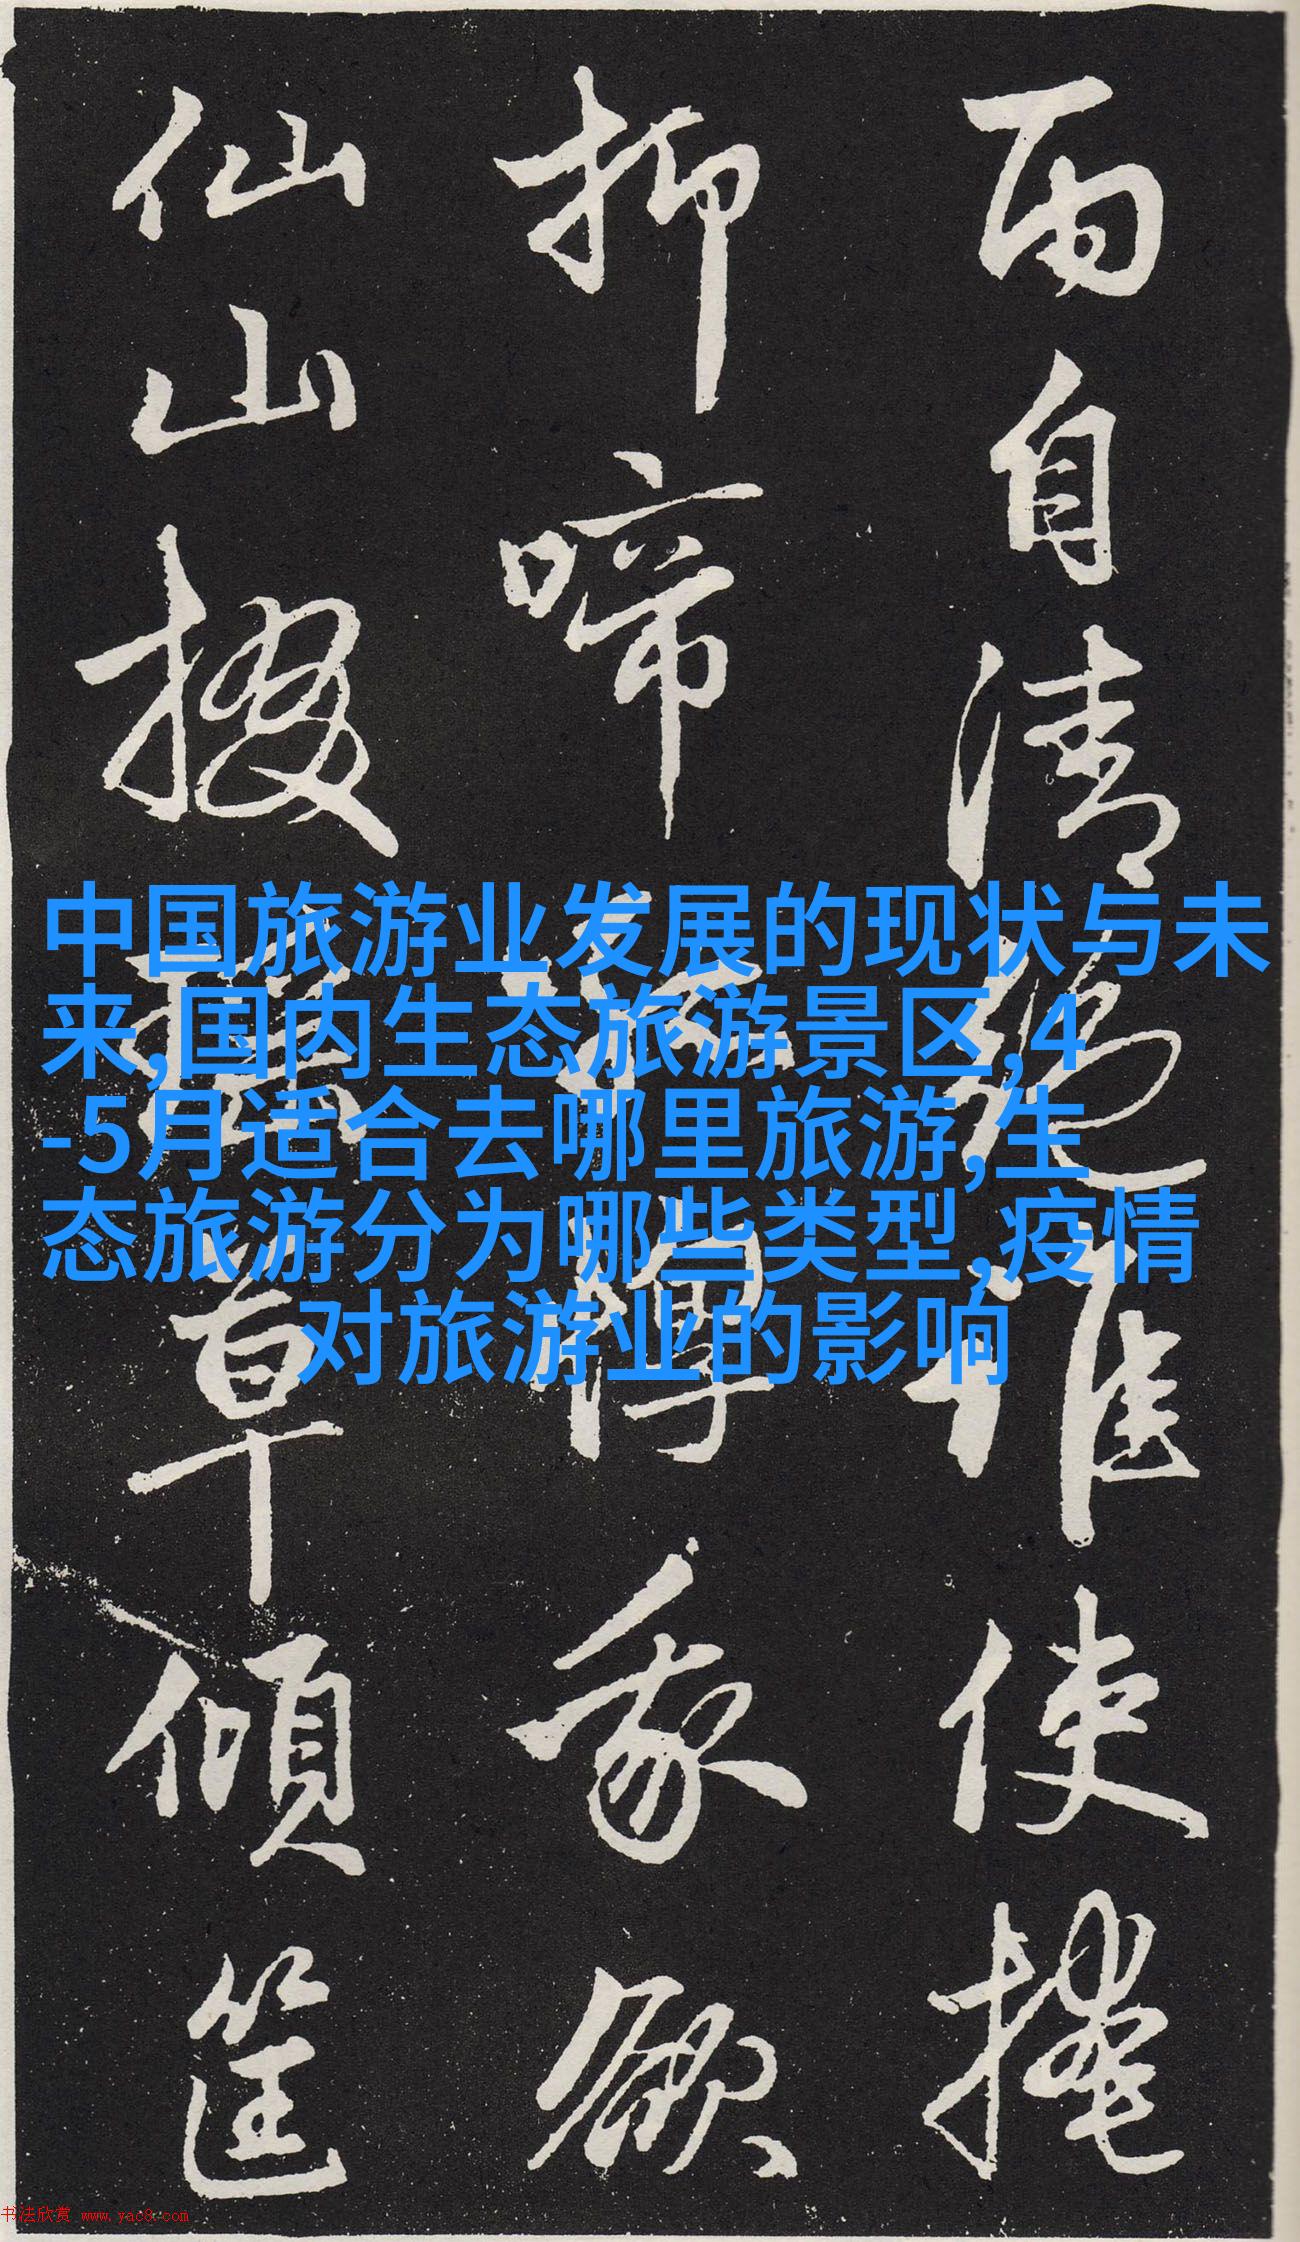 雨自清誰使掩
抑啼我欲
仙山掇草傾筐
中国旅游业发展的现状与未
来,国内生态旅游景区,4
-5月适合去哪里旅游,生
态旅游分为哪些类型,疫情
对旅游业的影响
书法欣赏 www.yac8.com